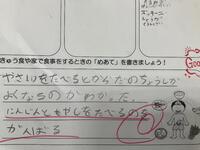 きゅう食や家で食事をするときの「めあて」を書きましょう!
Goo
やさいをたべるとからだのちょうしが
よくなるのがわかった。
にんじんともやしをたべるのを
がんばる